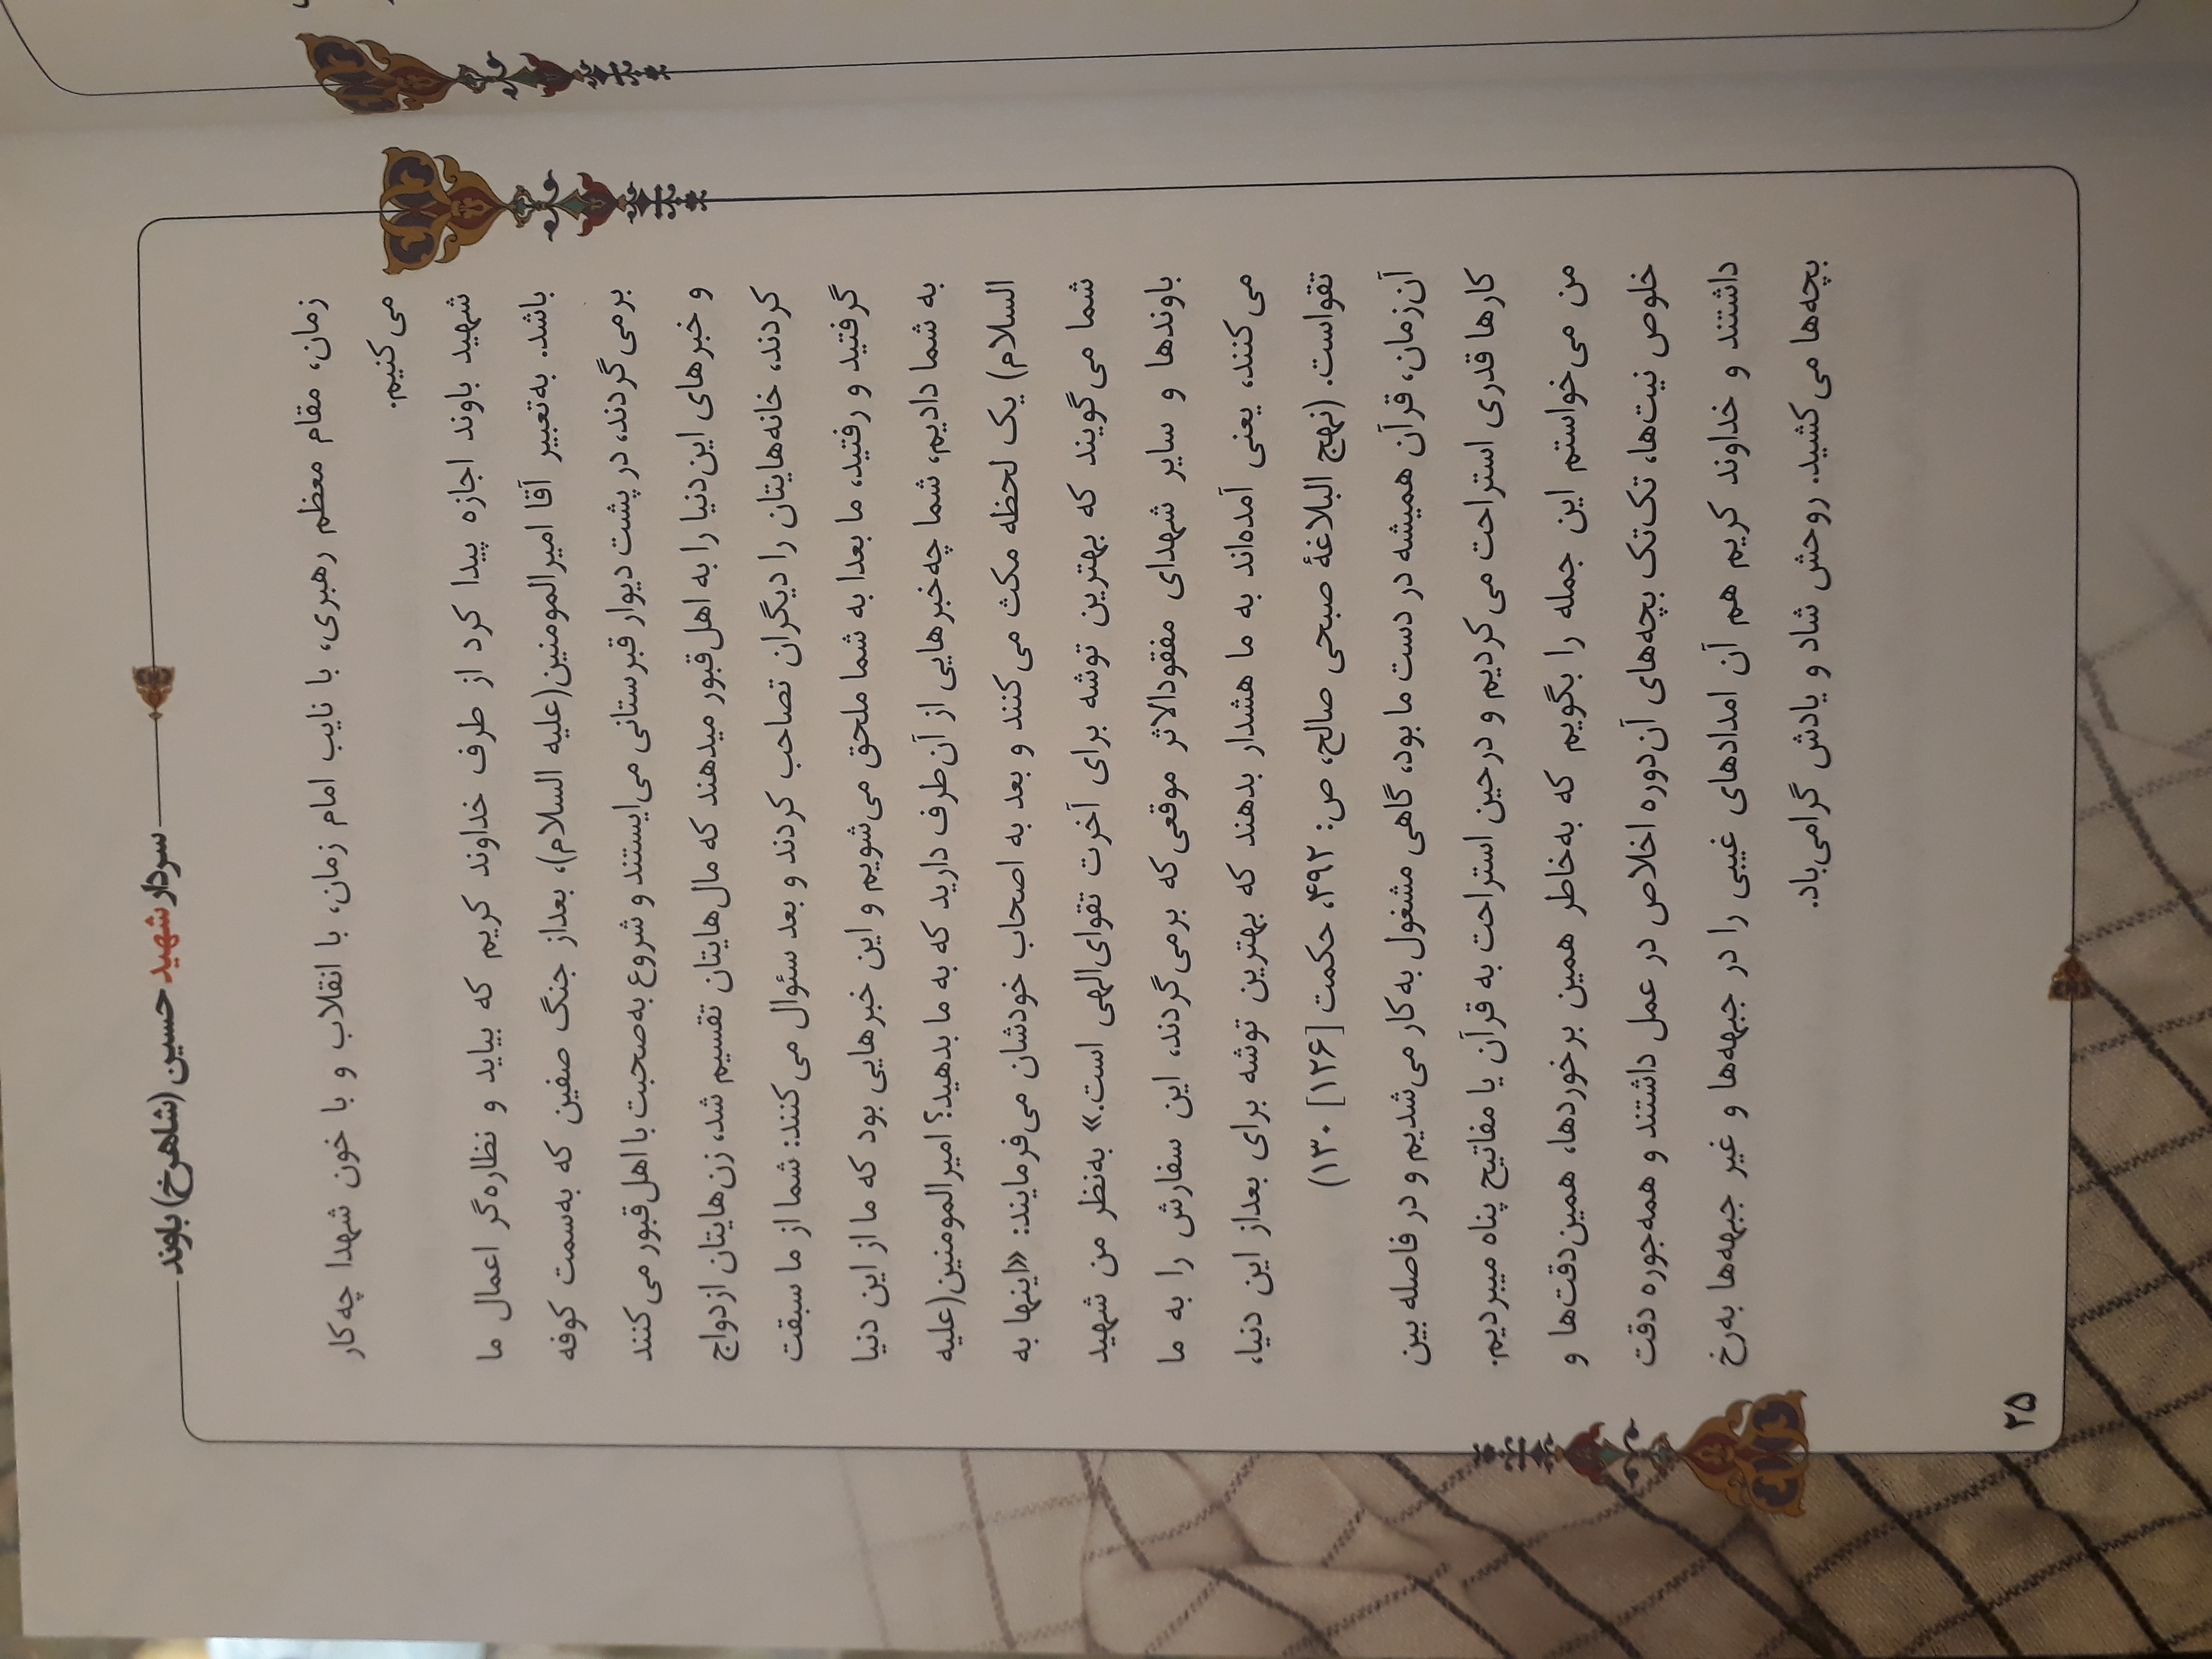 سردار شهید حسین (شاهرخ) باوند
زمان، مقام معظم رهبری، با نایب امام زمان، با انقلاب و با خون شهدا چه‌کار
می‌کنیم.
شهید باوند اجازه پیدا کرد از طرف خداوند کریم که بیاید و نظاره‌گر اعمال ما
باشد. به‌تعبیر آقا امیرالمومنین(علیه السلام)، بعداز جنگ صفین که به‌سمت کوفه
برمی‌گردند، در پشت دیوار قبرستانی می‌ایستند و شروع به‌صحبت با اهل‌قبور می‌کنند
و خبرهای این‌دنیا را به اهل‌قبور میدهند که مال‌هایتان تقسیم شد، زن‌هایتان ازدواج
کردند، خانه‌هایتان را دیگران تصاحب کردند و بعد سئوال می‌کنند: شما از ما سبقت
گرفتید و رفتید، ما بعدا به شما ملحق می‌شویم و این خبرهایی بود که ما از این دنیا
به شما دادیم، شما چه‌خبرهایی از آن‌طرف دارید که به ما بدهید؟ امیرالمومنین(علیه
السلام) یک لحظه مکث می‌کنند و بعد به اصحاب خودشان می‌فرمایند: «اینها به
شما می‌گویند که بهترین توشه برای آخرت تقوای‌الهی است.» به‌نظر من شهید
باوندها و سایر شهدای مفقودالاثر موقعی‌که برمی‌گردند، این سفارش را به ما
می‌کنند، یعنی آمده‌اند به ما هشدار بدهند که بهترین توشه برای بعداز این دنیا،
تقواست. (نهج البلاغهٔ صبحی صالح، ص: ۴۹۲، حکمت [۱۲۶] ۱۳۰)
آن‌زمان، قرآن همیشه در دست ما بود، گاهی مشغول به‌کار می‌شدیم و در فاصله بین
کارها قدری استراحت می‌کردیم و درحین استراحت به قرآن یا مفاتیح پناه میبردیم.
من می‌خواستم این جمله را بگویم که به‌خاطر همین برخوردها، همین‌دقت‌ها و
خلوص نیت‌ها، تک‌تک بچه‌های آن‌دوره اخلاص در عمل داشتند و همه‌جوره دقت
داشتند و خداوند کریم هم آن امدادهای غیبی را در جبهه‌ها و غیر جبهه‌ها به‌رخ
بچه‌ها می‌کشید. روحش شاد و یادش گرامی‌باد.
۲۵